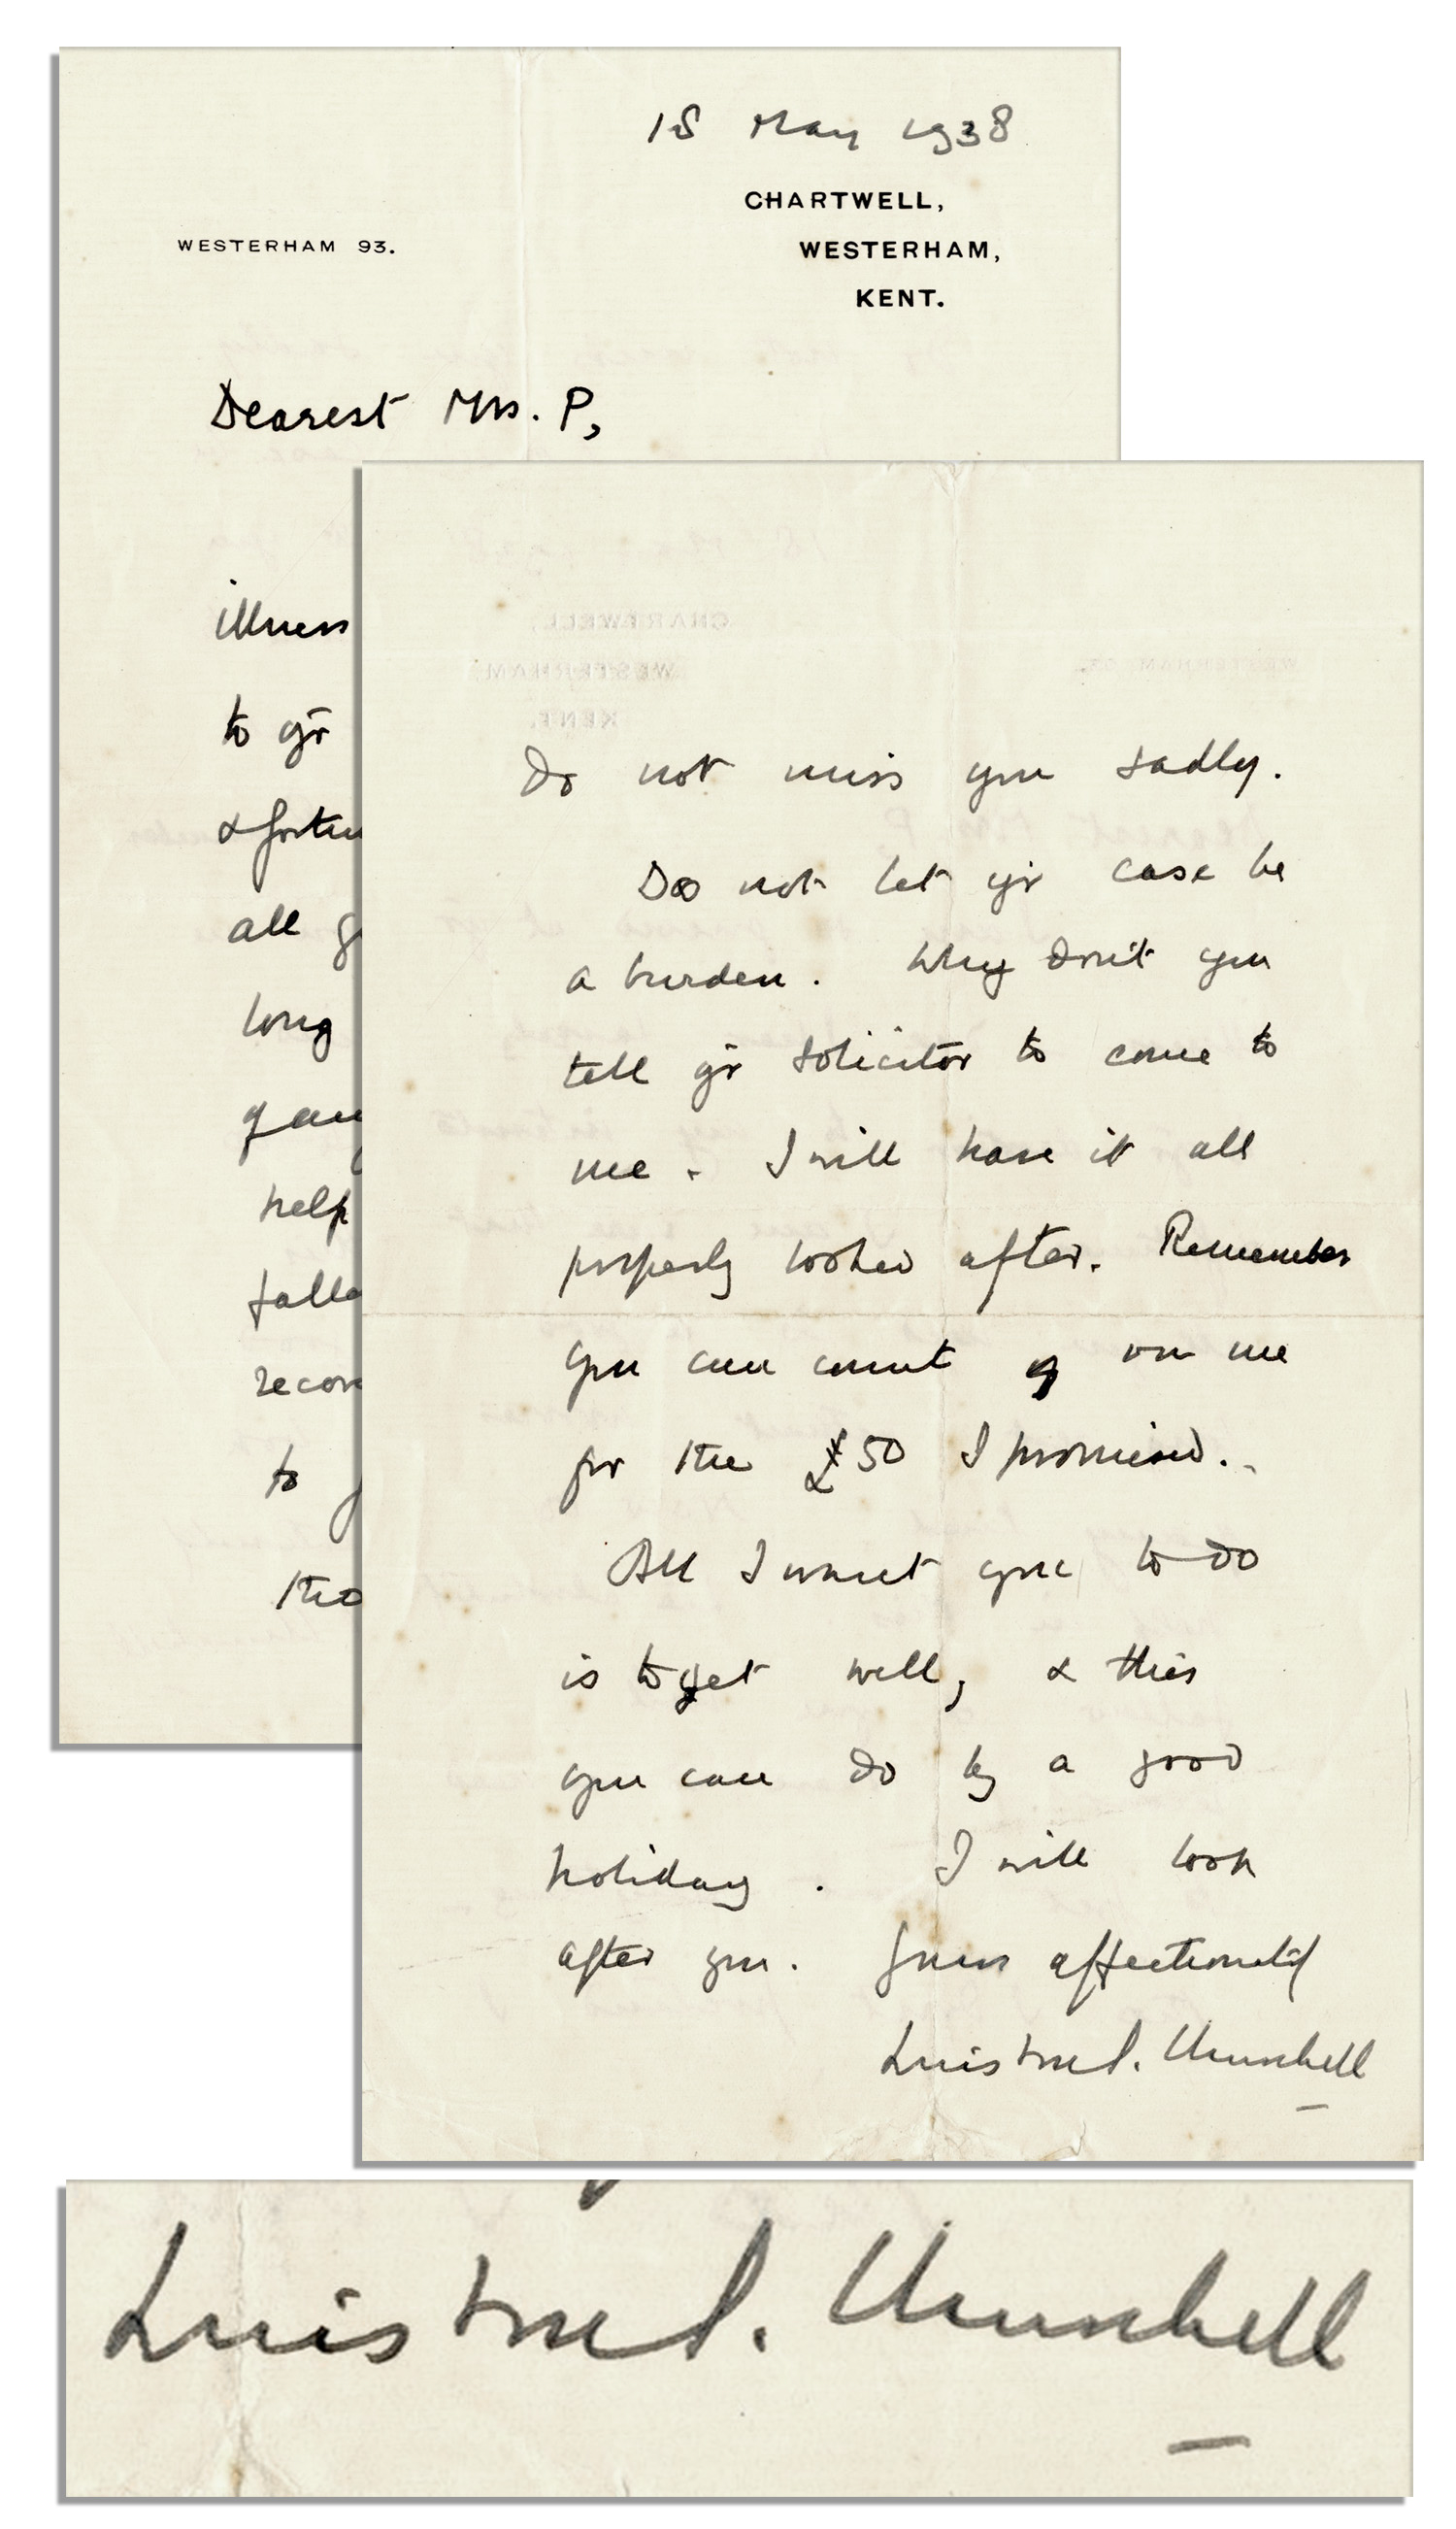 18 May 1938
CHARTWELL,
WESTERHAM 93.
WESTERHAM,
KENT.
Dearest Mrs. P,
illness
to yr
& fortu
all g
long
gau
help
falla
recov
to
tho
do not miss you sadly.
Do not let yr case be
a burden. Why don't you
tell yr solicitor to come to
me. I will have it all
properly looked after. Remember
you can count on me
for the £50 I promised.
All I want you to do
is to get well, & this
you can do by a good
holiday. I will look
after you. Yours affectionately
Winston S. Churchill
Winston S. Churchill